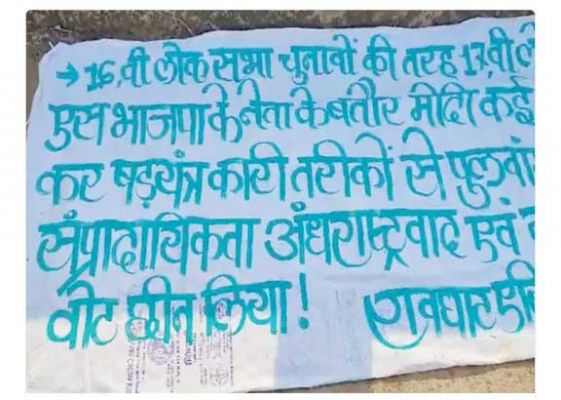 → 16,वी लोक सभा चुनावों की तरह 17,वी
एस भाजपा के नेता के बतौर मोदी कई
कर षड़यंत्र कारी तरीकों से पुलवा
संप्रादायिकता अंधराष्ट्रवाद एवं
वोट छीन लिया!